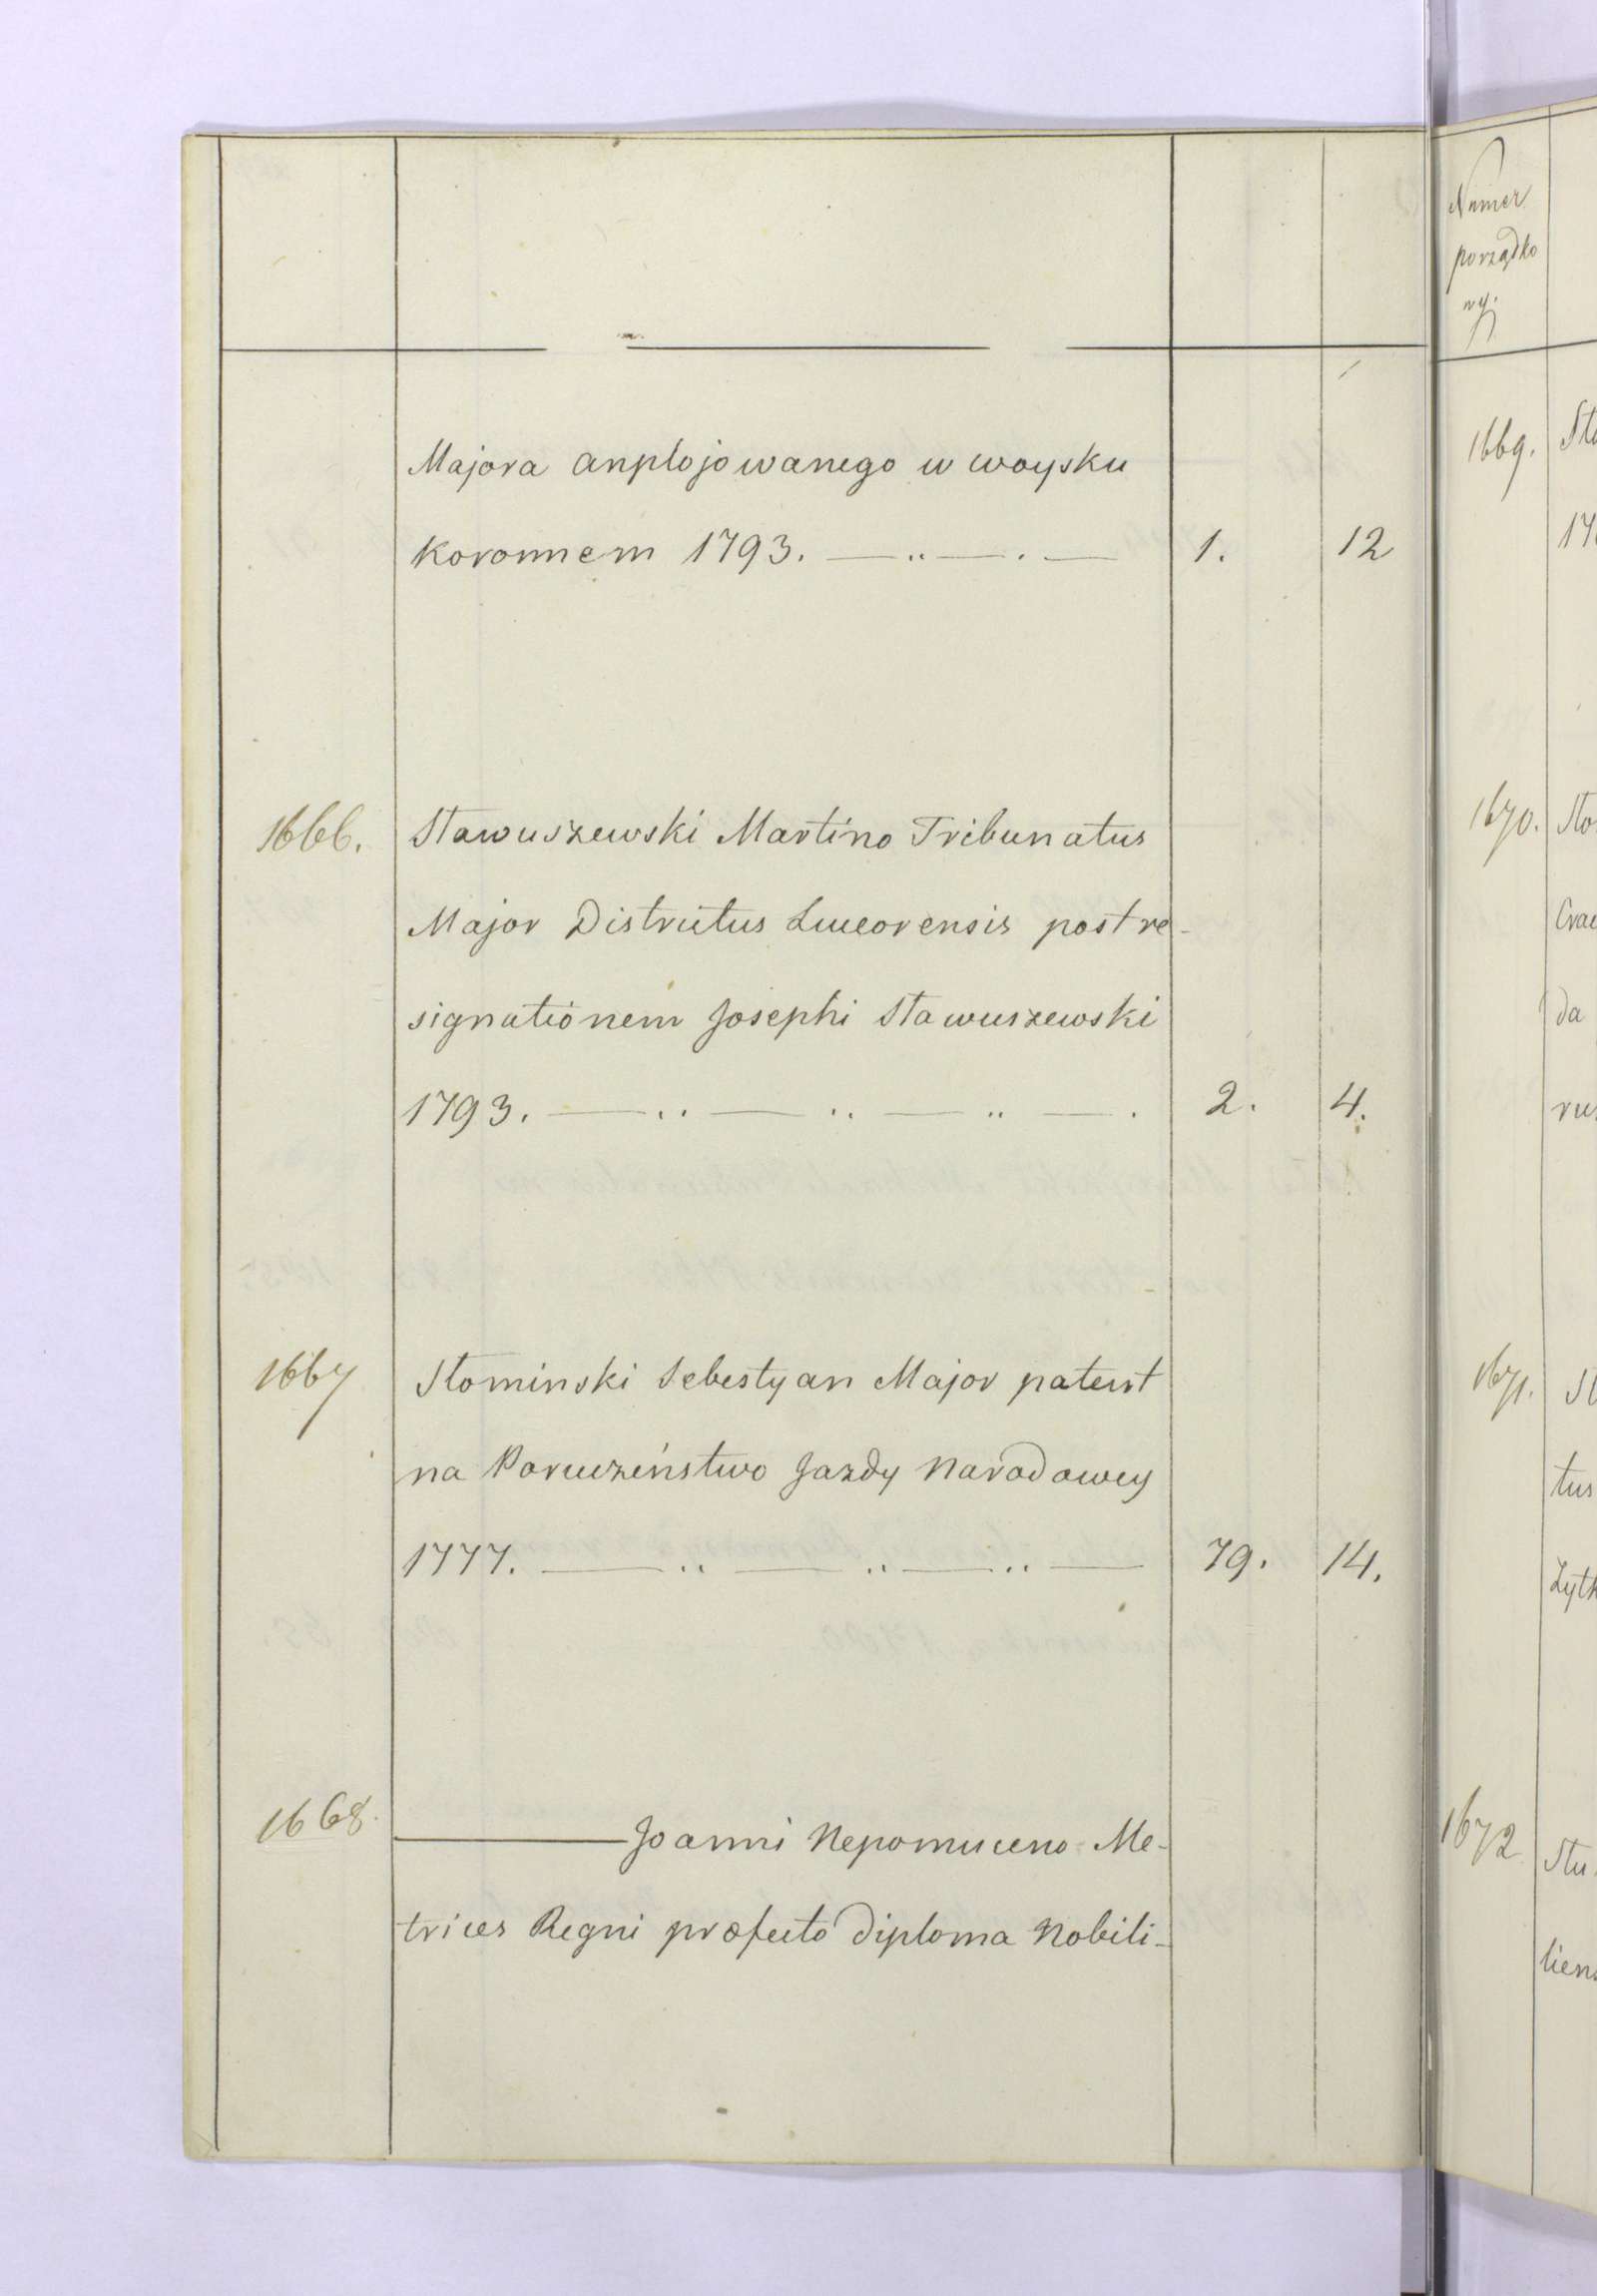 Majora anplojowanego w woysku
Koronnem 1793. — .. — . — 1. 12
1666. Stawuszewski Martino Tribunatus
Major Districtus Luceorensis post re-
signationem Josephi Stawuszewski
1793. — .. — .. — .. — . 2. 4.
1667 Stominski Sebestyan Major patent
na Poruczeństwo Jazdy Narodowey
1777. — .. — .. — .. — 79. 14.
1668. ——— Joanni Nepomuceno Me-
trices Regni præfecto diploma Nobili-
Numer
porządko
wy.
1669. Sta
17
1670. Sto
Crac
da
rus
1671. St
tus
Zytk
1672 Stu
liens